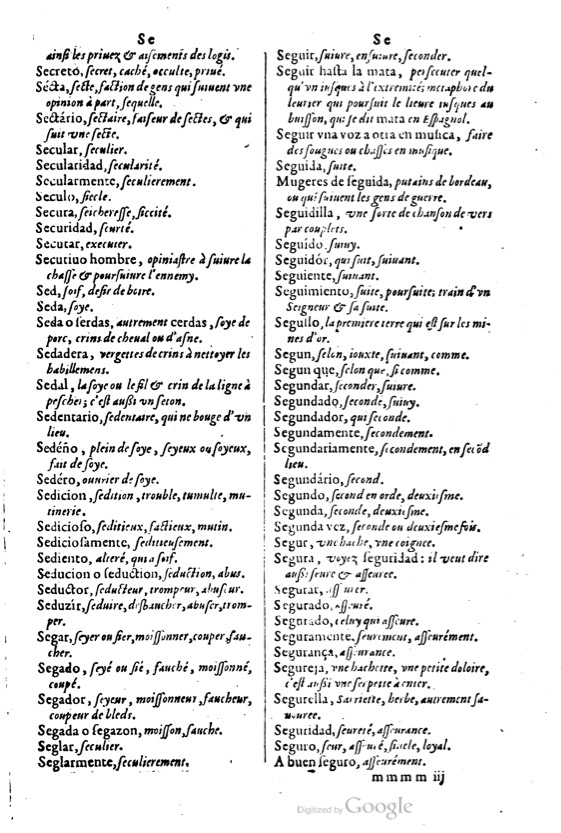 Se
ainſi les priuez & aiſements des logis.
Secreto, ſecret, caché, occulte, priué.
Sécta, ſecte, faction de gens qui ſuiuent vne
opinion à part, ſequelle.
Sectário, ſectaire, faiſeur de ſectes, & qui
ſuit vne ſecte.
Secular, ſeculier.
Secularidad, ſecularité.
Secularmente, ſeculierement.
Seculo, ſiecle.
Secura, ſeichereſſe, ſiccité.
Securidad, ſeurté.
Secutar, executer.
Secutiuo hombre, opiniaſtre à ſuiure la
chaſſe & pourſuiure l'ennemy.
Sed, ſoif, deſir de boire.
Seda, ſoye.
Seda o ſerdas, autrement cerdas, ſoye de
porc, crins de cheual ou d'aſne.
Sedadera, vergettes de crins à nettoyer les
habillemens.
Sedal, la ſoye ou le fil & crin de la ligne à
peſcher; c'eſt auſſi vn ſeton.
Sedentario, ſedentaire, qui ne bouge d'vn
lieu.
Sedéño, plein de ſoye, ſeyeux ou ſoyeux,
fait de ſoye.
Sedéro, ouurier de ſoye.
Sedicion, ſedition, trouble, tumulte, mu-
tinerie.
Sedicioſo, ſeditieux, factieux, mutin.
Sedicioſamente, ſeditieuſement.
Sediento, alteré, qui a ſoif.
Seducion o ſeduction, ſeduction, abus.
Seductor, ſeducteur, trompeur, abuſeur.
Seduzir, ſeduire, desbaucher, abuſer, trom-
per.
Segar, ſeyer ou ſier, moiſſonner, couper, fau-
cher.
Segado, ſeyé ou ſié, fauché, moiſſonné,
coupé.
Segador, ſeyeur, moiſſonneur, faucheur,
coupeur de bleds.
Segada o ſegazon, moiſſon, fauche.
Seglar, ſeculier.
Seglarmente, ſeculierement.
Se
Seguir, ſuiure, enſuiure, ſeconder.
Seguir haſta la mata, perſecuter quel-
qu'vn iuſques à l'extremité; metaphore du
leurier qui pourſuit le lieure iuſques au
buiſſon, qui ſe dit mata en Eſpagnol.
Seguir vna voz a otra en muſica, faire
des fougues ou chaſſes en muſique.
Seguida, ſuite.
Mugeres de ſeguida, putains de bordeau,
ou qui ſuiuent les gens de guerre.
Seguidilla, vne ſorte de chanſon de vers
par couplets.
Seguído, ſuiuy.
Seguidór, qui ſuit, ſuiuant.
Seguiente, ſuiuant.
Seguimiento, ſuite, pourſuite; train d'vn
Seigneur & ſa ſuite.
Segullo, la premiere terre qui eſt ſur les mi-
nes d'or.
Segun, ſelon, iouxte, ſuiuant, comme.
Segun que, ſelon que, ſi comme.
Segundar, ſeconder, ſuiure.
Segundado, ſecondé, ſuiuy.
Segundador, qui ſeconde.
Segundamente, ſecondement.
Segundariamente, ſecondement, en ſecōd
lieu.
Segundário, ſecond.
Segundo, ſecond en orde, deuxieſme.
Segunda, ſeconde, deuxieſme.
Segunda vez, ſeconde ou deuxieſme fois.
Segur, vne hache, vne coignee.
Segura, voyez ſeguridad: il veut dire
auſſi ſeure & aſſeuree.
Segurar, aſſeurer.
Segurado, aſſeuré.
Segurador, celuy qui aſſeure.
Seguramente, ſeurement, aſſeurément.
Segurança, aſſeurance.
Segureja, vne hachette, vne petite doloire,
c'eſt auſſi vne ſerpette à enter.
Segurella, Sarriette, herbe, autrement ſa-
uouree.
Seguridad, ſeureté, aſſeurance.
Seguro, ſeur, aſſeuré, fidele, loyal.
A buen ſeguro, aſſeurément.
mmmm iij
Digitized by Google